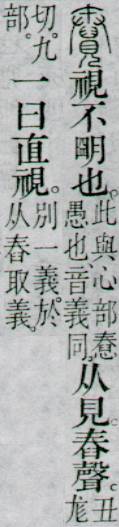 視不朙也。此與心部憃愚也、音義同。从見。舂聲。丑尨
切。九部。一曰直視。別一義。於从舂取義。